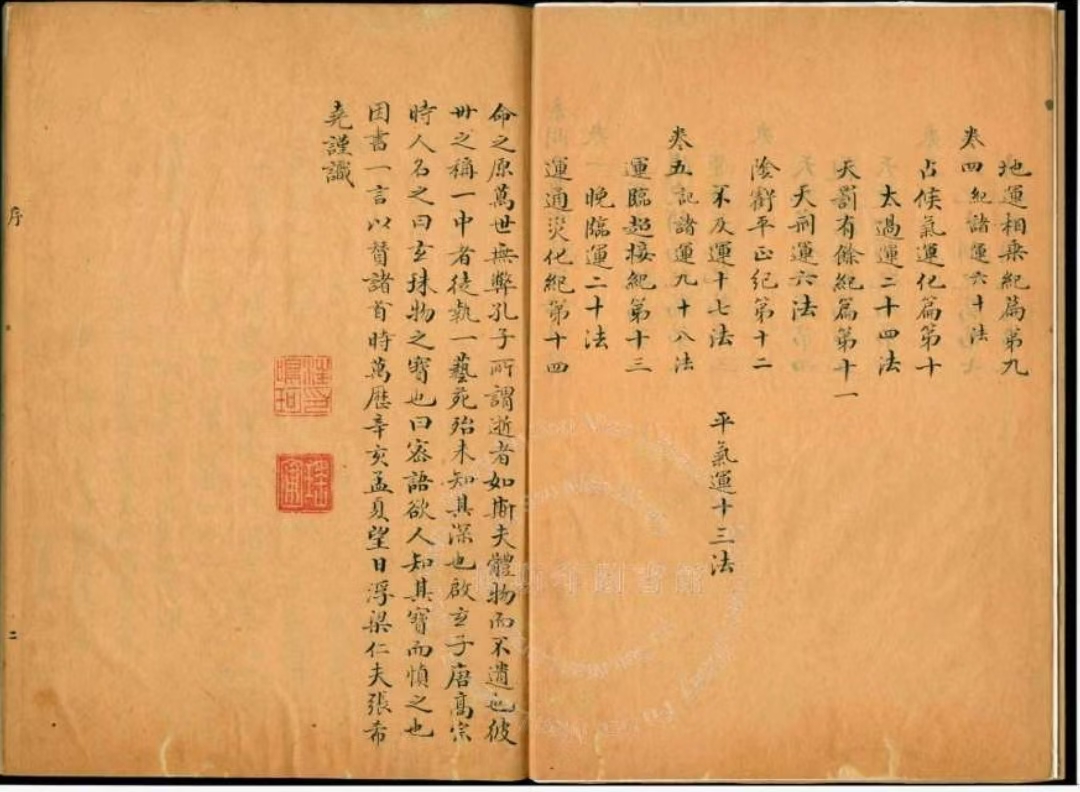 地運相乘紀篇第九
卷四紀諸運六十法
占候氣運化篇第十
太過運二十四法
天罰有餘紀篇第十一
天刑運六法
陰衡平正紀第十二
不及運十七法 平氣運十三法
卷五記諸運九十八法
運臨超接紀第十三
晚臨運二十法
運通災化紀第十四
命之原萬世無弊孔子所謂逝者如斯夫體物而不遺也彼
卅之稱一中者徒執一藝苑殆未知其深也啟玄子唐高宗
時人名之曰玄珠物之寶也曰密語欲人知其寶而慎之也
因書一言以贊諸首時萬歷辛亥孟夏望日浮梁仁夫張希
堯謹識
序
二